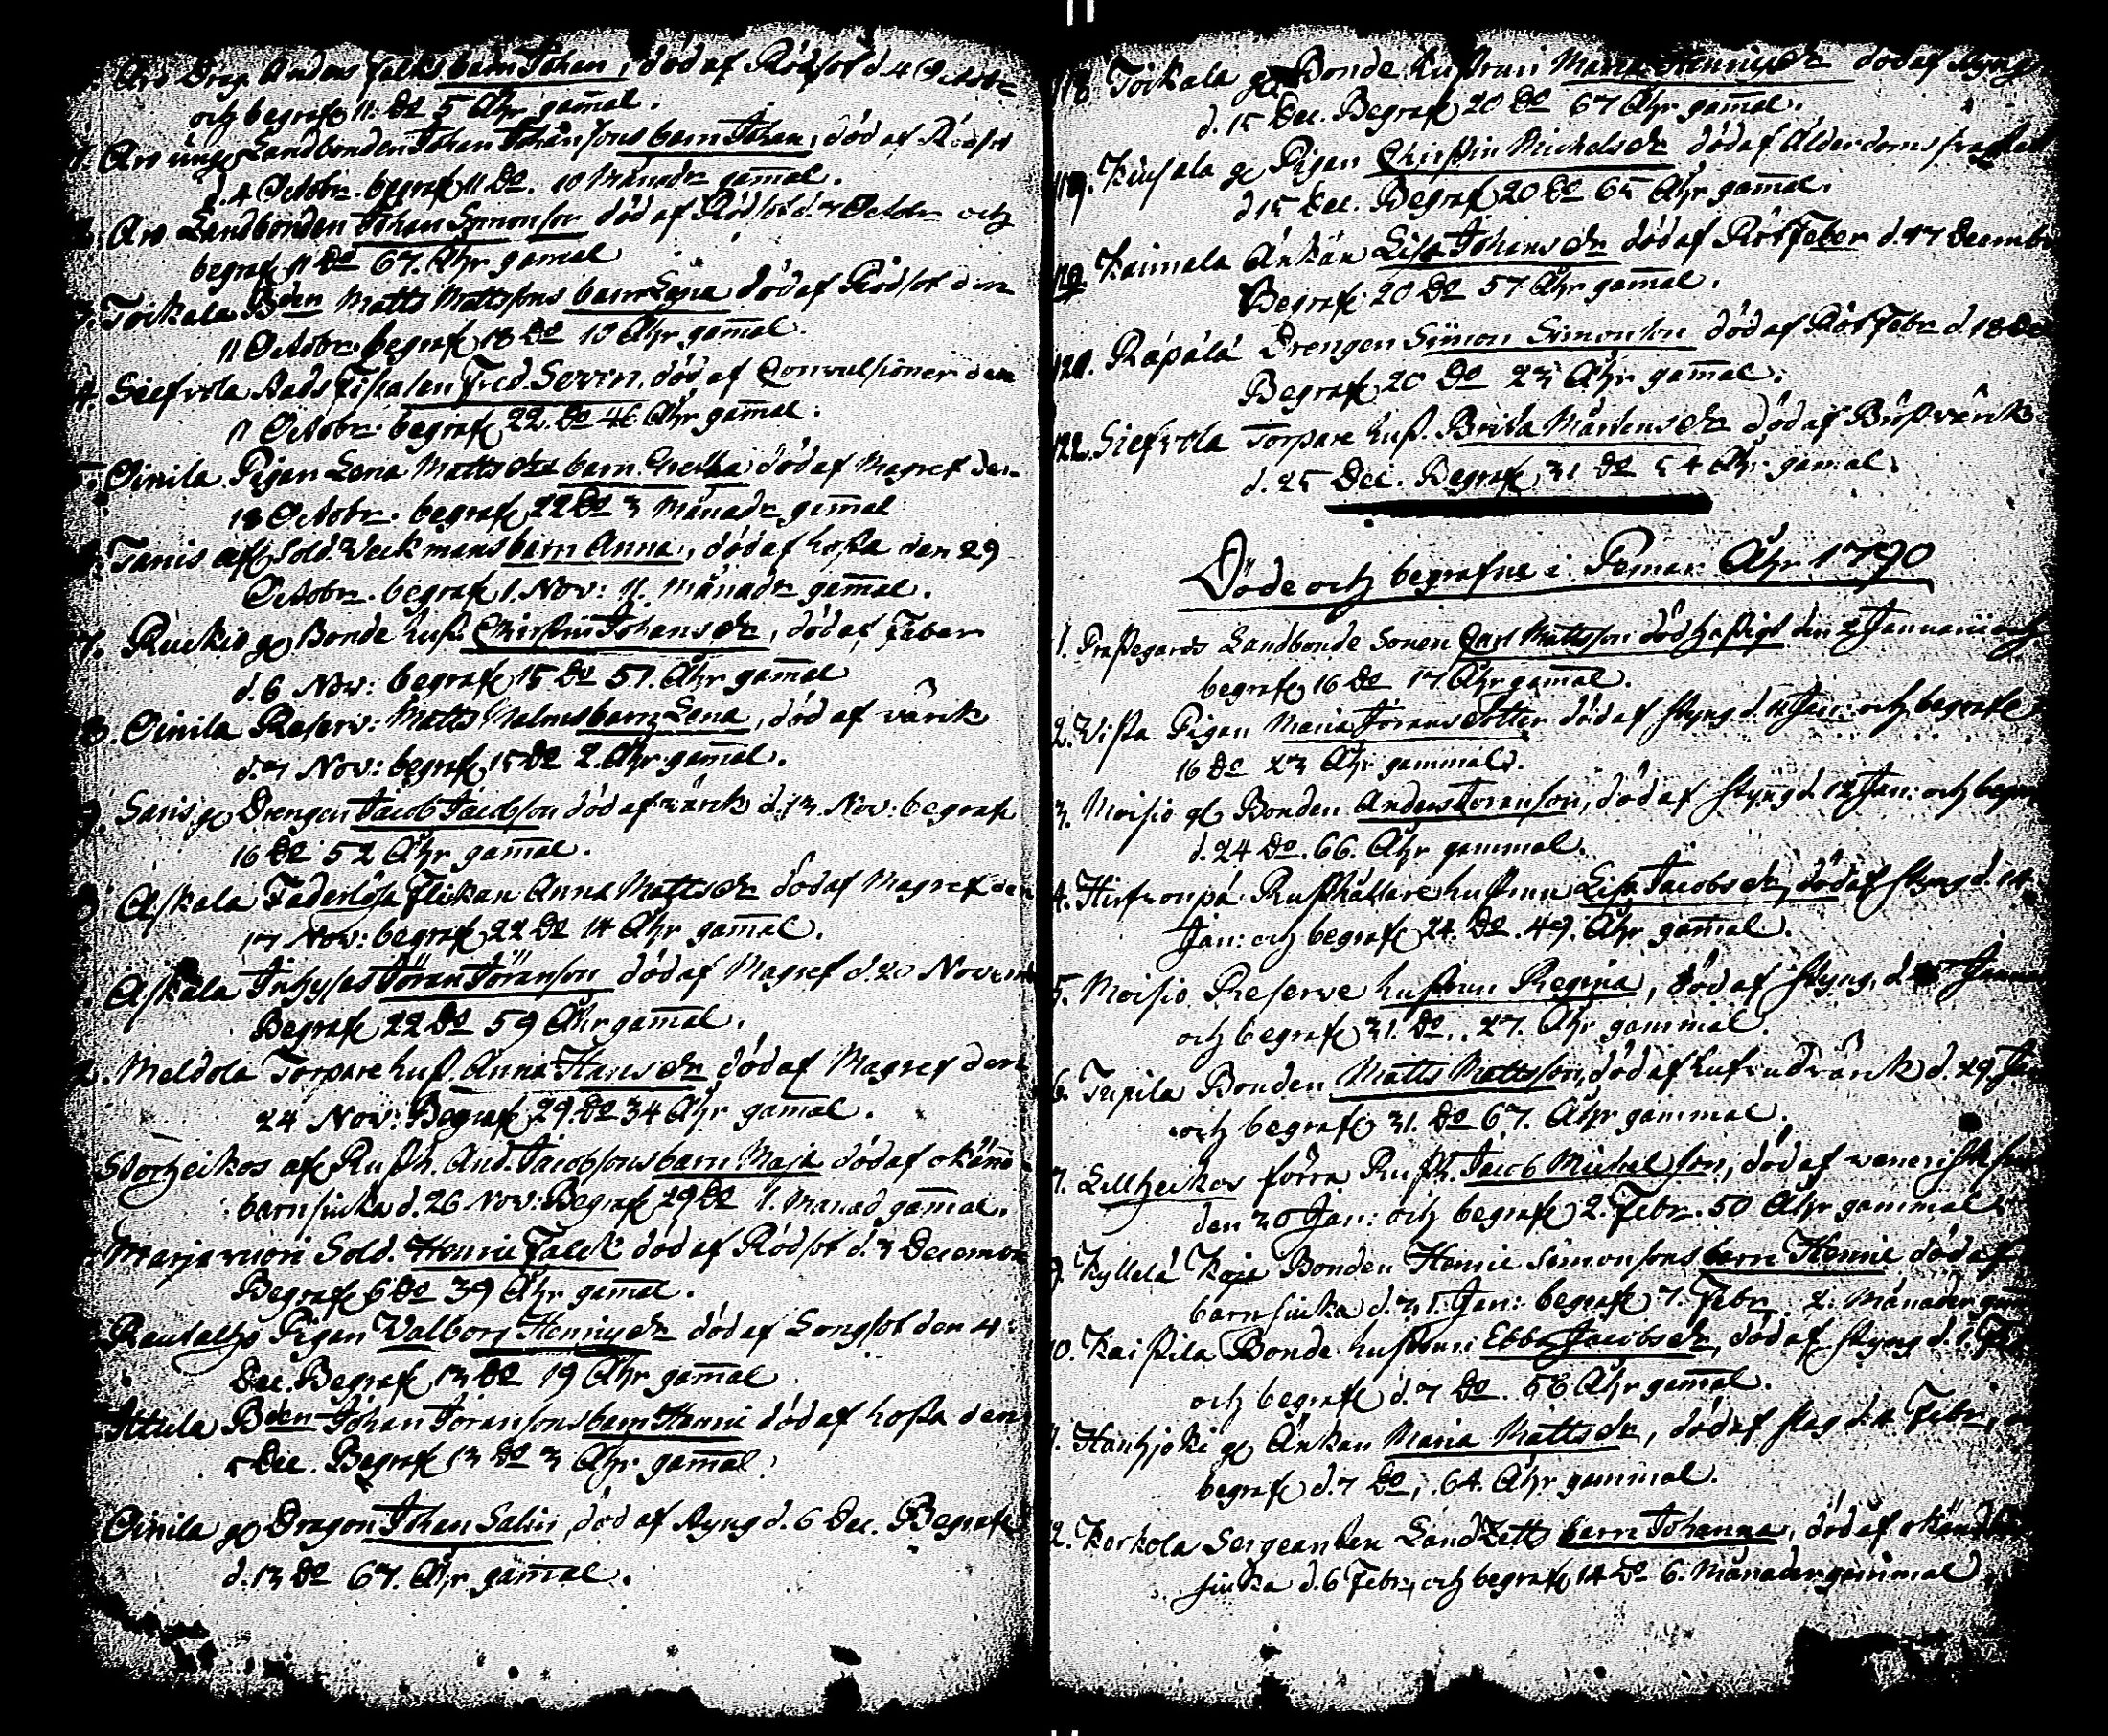 Aro Drag. Anders Falks barn Johan, död af Rödsot d. 4 Octobr
och begrafs 11. Do 5 Åhr gamal.
Aro unge Landbonden Johan Johansons barn Johan, död af Rödsot
d. 4 Octobr. begrafs 11 Do. 10 Månadr gamal.
Aro Landbonden Johan Simonson död af Rödsot d. 7 Octobr och
begrafs 11 Do 67. Åhr gamal
Toickala Bden Matts Mattssons barn Lena död af Rödsot den
11 Octobr. begrafs 18 Do 10 Åhr gamal.
4. Siefvola Fred. Sevrin, död af Convulsioner den
11 Octobr. begrafs 22. Do 46 Åhr gamal.
Oinila Pigan Lena Matts drs barn död af Magref den
18 Octobr. begrafs 22 Do 3 Månadr gamal
Tanis afs. Sold. Weckmans barn Anna, död af hosta den 29
Octobr. begrafs 1. Nov: 11. Månadr gamal.
7. Ruckio gl Bonde hust. Christin Johans dr, död af Feber
d. 6 Nov: begrafs 15 Do 57. Åhr gamal
8. Oinila Reserv: Matts Malms barn Lena, död af värck
d. 7 Nov: begrafs 15 Do 2. Åhr gamal.
9. Saris gl Drengen Jacob Jacobson död af värck d. 13. Nov: begrafs
16 Do 52 Åhr gamal.
Askala Faderlösa Flickan Anna Matts dr död af Magref den
17 Nov: begrafs 22 Do 14 Åhr gamal.
Askala Inhyses Jöran Jöranson död af Magref d. 20 Novem
Begrafs 22 Do 59 Åhr gamal.
2. Meldola Torpare hust. Anna Hans dr död af Magref den
24 Nov: Begrafs 29. Do 34 Åhr gamal.
Storheikos afs. Rusth. And. Jacobsons barn Maja död af okänd
barnsiuka d. 26 Nov: Begrafs 29 Do 1. Månad gamal.
Marjavuori Sold. Henric Falck död af Rödsot d. 3 Decembr
Begrafs 6 Do 39 Åhr gamal.
Rautalho Pigan Valborg Henrics dr död af Longsot den 4
Dec. Begrafs 13 Do 19 Åhr gamal
Attula Bden Johan Jöransons barn Henric död af hosta den
5 Dec. Begrafs 13 Do 3 Åhr gamal.
Oinila gl Dragon Johan Salin, död af styng d. 6 Dec. Begrafs
d. 13 Do 67. Åhr gamal.
118. Toickala gl Bonde hustrun Maria Henrics dr död af styng
d. 15 Dec. Begrafs 20 Do 67 Åhr gamal.
119. gl Pigan Christin Michels dr död af Ålderdoms
d 15 Dec. Begrafs 20 Do 65 Åhr gamal.
Kaunala Änkan Lisa Johans dr död af Rötfeber d. 17 Decembr
Begrafs 20 Do 57 Åhr gamal.
121. Räpälä Drengen Simon Simonson död af Rötfebr d. 18 De
Begrafs 20 Do 23 Åhr gamal.
122. Siefvola Torpare hust. Brita Mårtens dr död af Bröstvärck
d. 25 Dec. Begrafs 31 Do 54 Åhr gamal.
Döde och begrafne i Pemar Åhr 1790
1. Prästegårds Landbonde Sonen Carl Mattsson död hastigt den 2 Januarii och
begrafs 16 Do 17 Åhr gamal.
2. Vista Pigan Maria Jörans dotter död af styng d. 12 Jan: och begrafs
16 Do 23 Åhr gammal.
3. Moisio gl Bonden Anders Joranson, död af styng d 12 Jan: och begra
d. 24 Do. 66. Åhr gammal.
4. Hirfvonpä Rusthållare hustrun Lisa Jacobs dr, död af styng d. 14
Jan: och begrafs 24. Do. 49. Åhr gamal.
5. Moisio Reserve hustrun Regina, död af styng, d Janu
och begrafs 31. Do. 27. Åhr gammal.
6. Tupila Bonden Matts Mattsson, död af hufvudvärck d. 29 Jan
och begrafs 31. Do 67. Åhr gammal.
7. Lillheikos förra Rusth. Jacob Michelson, död af venerisk
den 30 Jan: och begrafs 2. Febr. 50 Åhr gammal.
9. Kyllelä Bonden Henric Simonsons barn Henric död af
barnsiuka d. 31. Jan: begrafs 7. Febr. 2. Månader gam
10. Kaistila Bonde hustrun Ebba Jacobs dr, död af styng d. 1. F
och begrafs d. 7 Do. 56 Åhr gamal.
Hanhjoki gl Änkan Maria Matts dr, död af slag d. 4 Febr,
begrafs d. 7 Do, 64. Åhr gammal.
2. Korkola Sergeanten Landzetts barn Johanna, död af okänd
siuka d. 6 Febr, och begrafs 14 Do 6. Månader gammal.